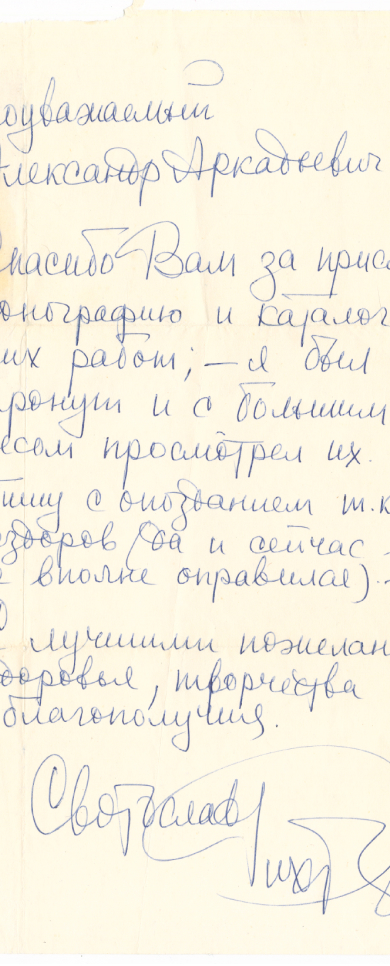 оуважаемый
лександр Аркадьевич
пасибо Вам за присл
онографию и каталог
их работ; – я был
ронут и с большим
есом просмотрел их.
пишу с опозданием т.к
здоров (да и сейчас
е вполне оправился) –
С
лучшими пожелан
доровья, творчества
благополучия.
Святослав
Рихт